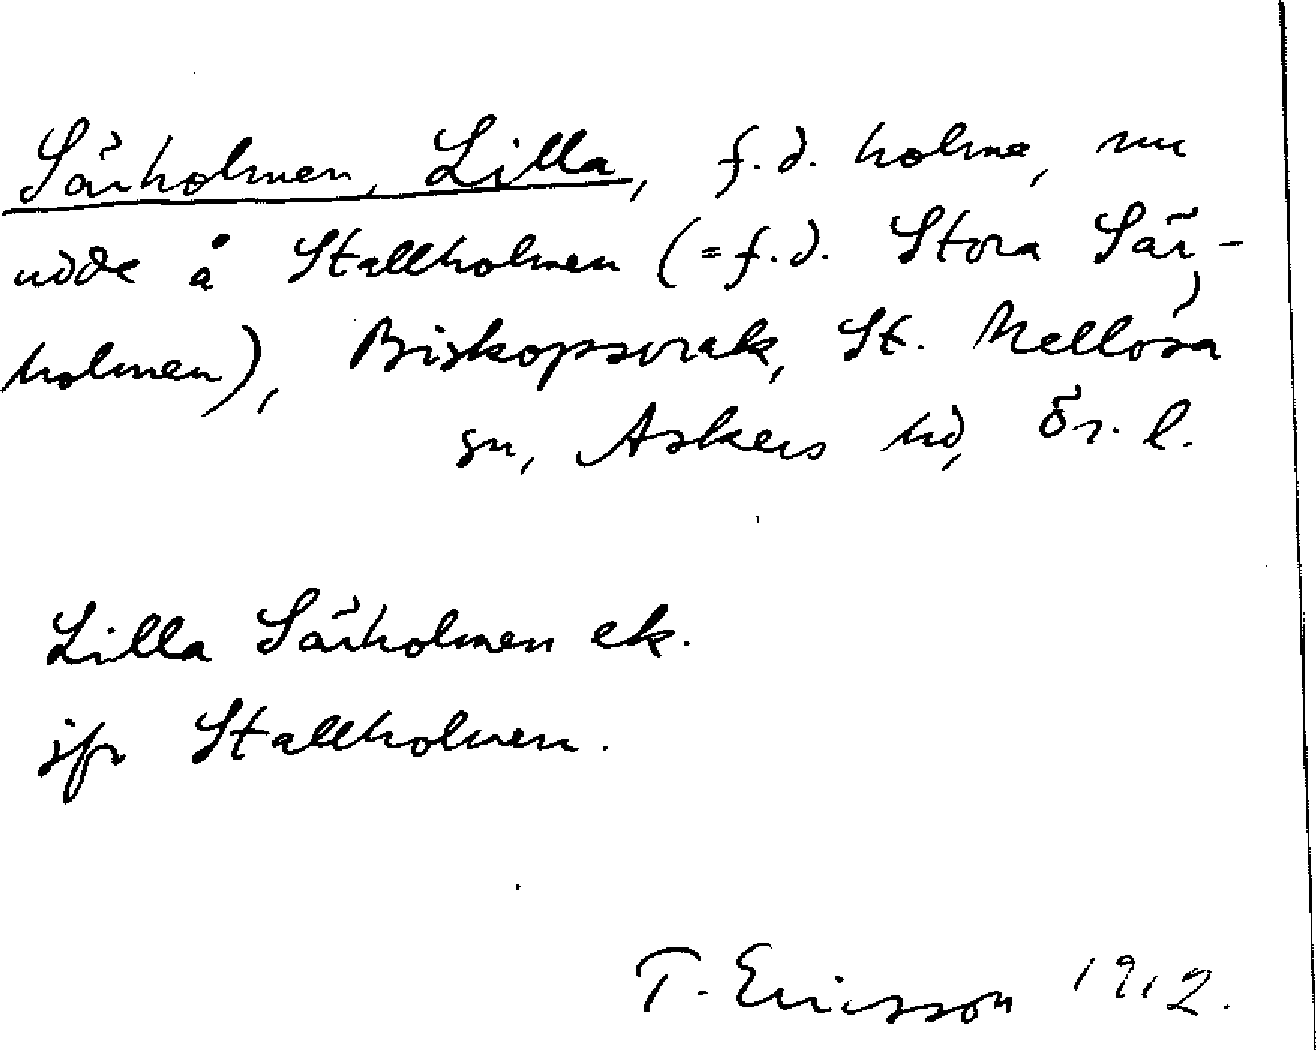 Särholmen, Lilla, f.d. holme, nu
udde å Stallholmen (=f.d. Stora Sär-
holmen), Biskopsvrak, St. Mellösa
sn, Askers hd, Ör. l.
Lilla Särholmen ek.
jfr Stallholmen.
T. Ericsson 1912.